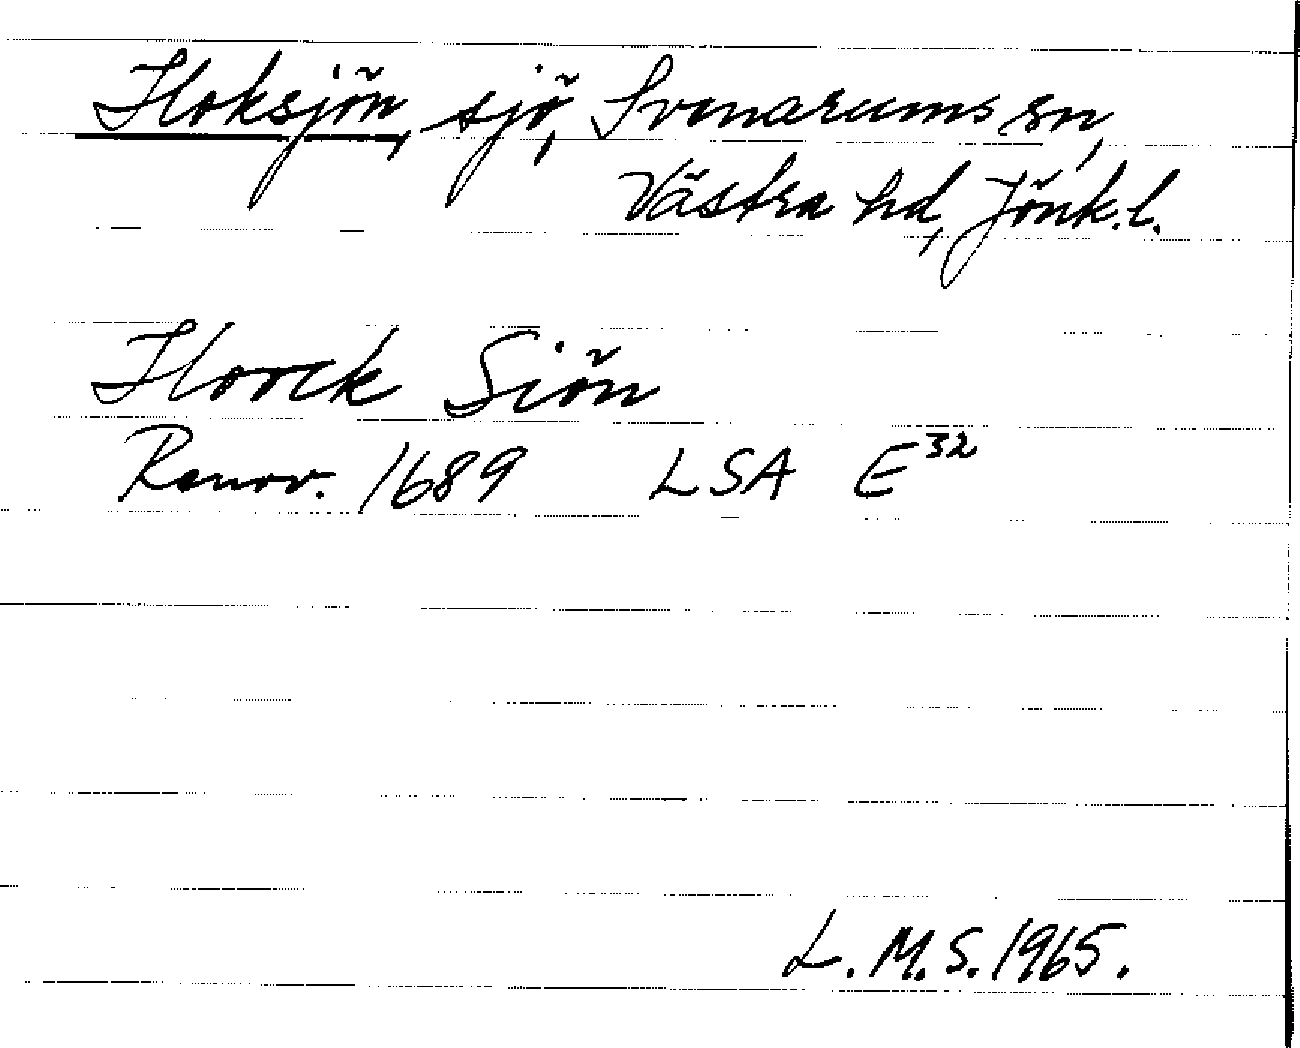 Hoksjön, sjö, Svenarums sn,
Västra hd, Jönk.l.
Hoock Siön
Renov. 1689 LSA E³²
L.M.S. 1965.